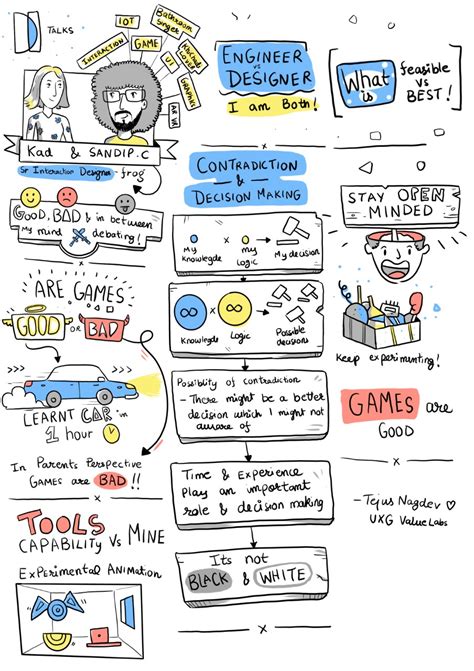 TALKS
INTERACTION
IOT
GAME
UI
Bathroom
Singer
GRAPHICS
AR VR
Kad & SANDIP.C
Sr Interaction Designer - frog
Good, BAD & in between
My mind debating!
ARE GAMES
GOOD OR BAD
LEARNT CAR in
1 hour
In Parents Perspective
GAMES are BAD!!
x
TOOLS
CAPABILITY Vs MINE
EXPERIMENTAL ANIMATION
ENGINEER
vs
DESIGNER
I am Both!
x
CONTRADICTION
&
DECISION MAKING
x
My
Knowlegde
My
Logic
My decision
x
Knowlegde
Logic
Possible
decisions
Possiblity of contradiction
- There might be a better
decision which I might not
aware of
Time & Experience
play an important
role & decision making
Its not
BLACK & WHITE
x
What
is
feasible
vs
BEST!
STAY OPEN
MINDED
Keep experimenting!
GAMES are
GOOD
x
- Tejus Nagdev
UXG ValueLabs